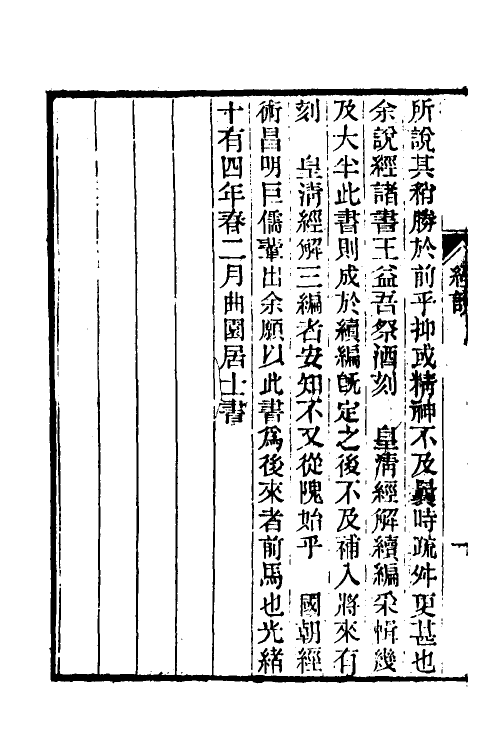 經說
一
所說其稍勝於前乎抑或精神不及曩時疏舛更甚也
余說經諸書王益吾祭酒刻　皇淸經解續編采輯幾
及大半此書則成於續編旣定之後不及補入將來有
刻　皇淸經解三編者安知不又從隗始乎　國朝經
術昌明巨儒輩出余願以此書爲後來者前馬也光緒
十有四年春二月曲園居士書